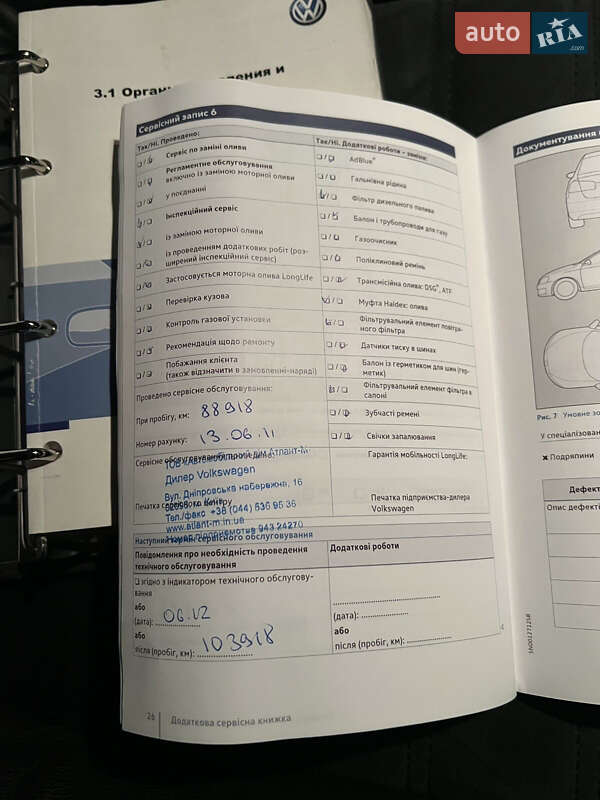 auto RIA .com
3.1 Орган
Сервісний запис 6
Так/Ні. Проведено:
Сервіс по заміні оливи
Регламентне обслуговування
включно із заміною моторної оливи
у поєднанні
Інспекційний сервіс
із заміною моторної оливи
із проведенням додаткових робіт (роз-
ширений інспекційний сервіс)
Застосовується моторна олива LongLife
Перевірка кузова
Контроль газової установки
Рекомендація щодо ремонту
Побажання клієнта
(також відзначити в замовленні-наряді)
Так/Ні. Додаткові роботи – заміна:
AdBlue®
Гальмівна рідина
Фільтр дизельного палива
Балон і трубопроводи для газу
Газоочисник
Поліклиновий ремінь
Трансмісійна олива: DSG®, ATF
Муфта Haldex: олива
Фільтрувальний елемент повітря-
ного фільтра
Датчики тиску в шинах
Балон із герметиком для шин (гер-
метик)
Фільтрувальний елемент фільтра в
салоні
Зубчасті ремені
Свічки запалювання
Проведено сервісне обслуговування:
При пробігу, км: 88918
Номер рахунку: 13.06.11
Сервісне обслуговування проведено:
ТОВ «Автомобільний дім Атлант-М
Дилер Volkswagen
Вул. Дніпровська набережна, 16
Печатка сервісного центру
Тел./факс +38 (044) 536 95 36
www.atlant-m.in.ua
Номер підприємства 943 24270
Гарантія мобільності LongLife:
Печатка підприємства-дилера
Volkswagen
Наступний термін сервісного обслуговування
Повідомлення про необхідність проведення
технічного обслуговування
згідно з індикатором технічного обслугову-
вання
або
(дата): 06.12
або
після (пробіг, км): 103918
Додаткові роботи
(дата):
або
після (пробіг, км):
26 Додаткова сервісна книжка
Документування
Рис. 7 Умовне зо
У спеціалізован
✖ Подряпини
Дефект
Опис дефекті